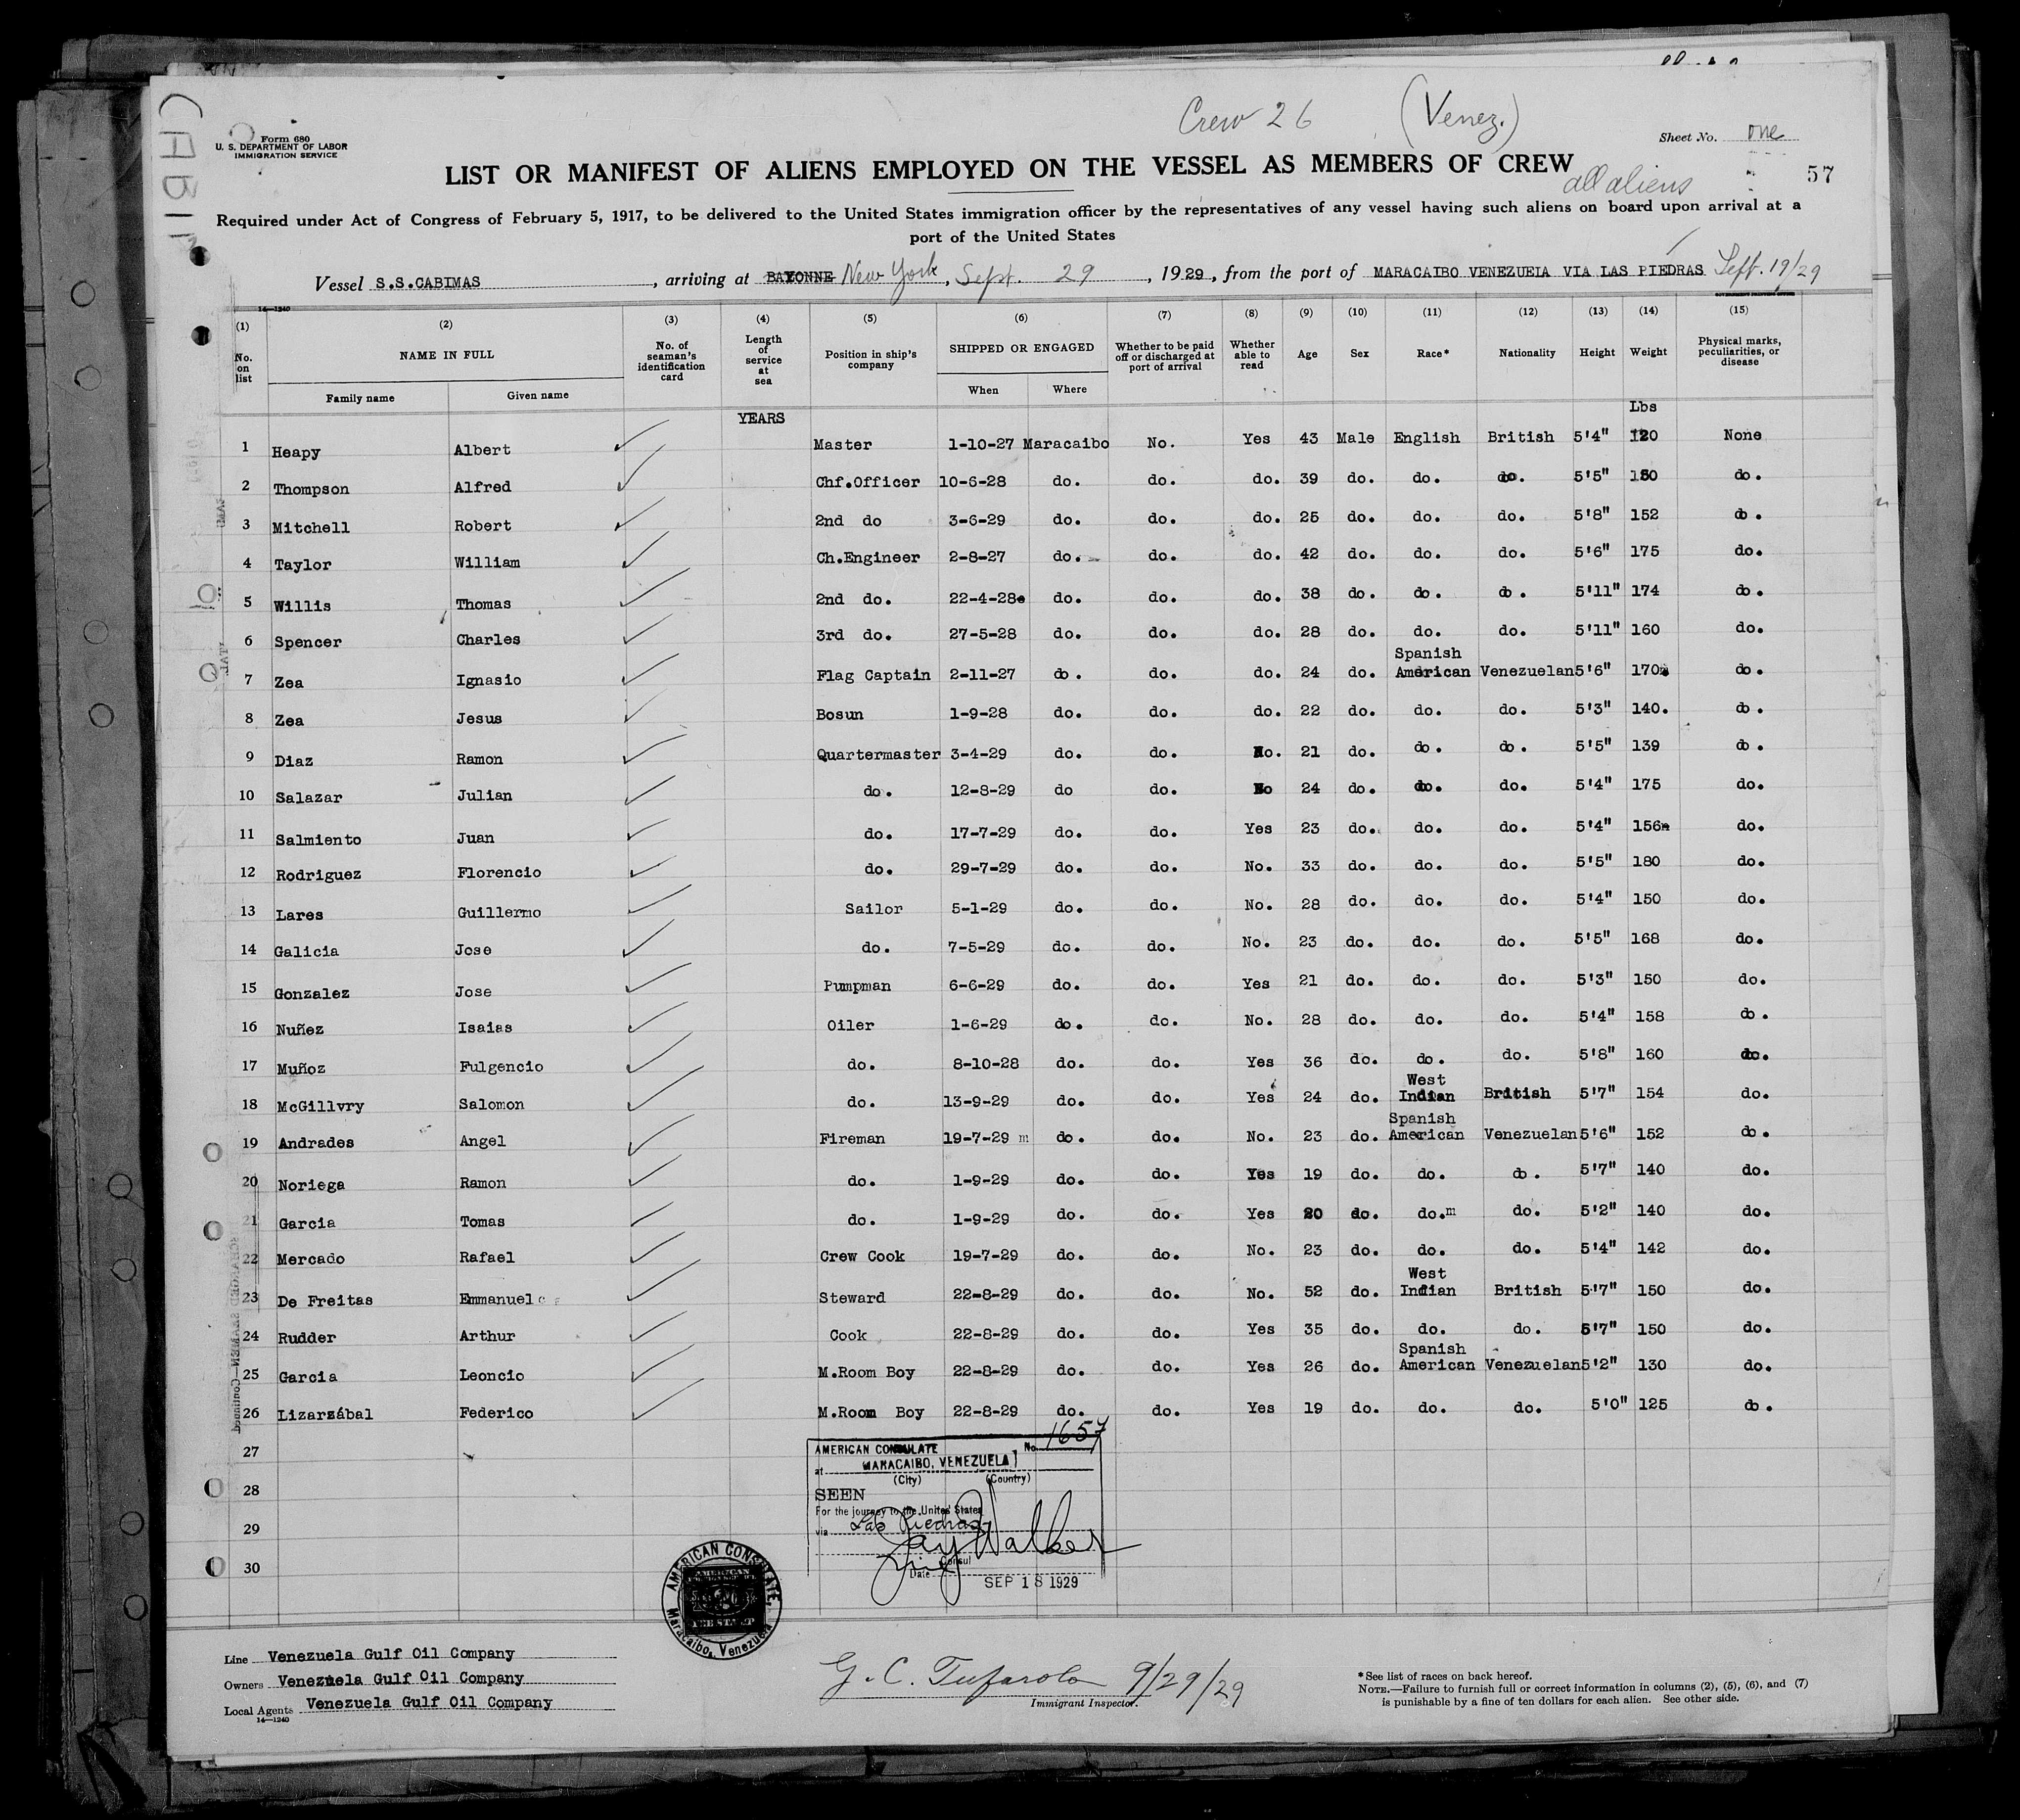 Crew 26 (Venez.)
Form 680
U. S. DEPARTMENT OF LABOR
IMMIGRATION SERVICE
Sheet No. one
LIST OR MANIFEST OF ALIENS EMPLOYED ON THE VESSEL AS MEMBERS OF CREW
all aliens
57
Required under Act of Congress of February 5, 1917, to be delivered to the United States immigration officer by the representatives of any vessel having such aliens on board upon arrival at a
port of the United States
Vessel S.S.CABIMAS, arriving at BAYONNE New York, Sept. 29, 1929, from the port of MARACAIBO VENEZUEIA VIA LAS PIEDRAS Sept. 19/29
14-1240
(1) (2) (3) (4) (5) (6) (7) (8) (9) (10) (11) (12) (13) (14) (15)
No. on list NAME IN FULL No. of seaman's identification card Length of service at sea Position in ship's company SHIPPED OR ENGAGED Whether to be paid off or discharged at port of arrival Whether able to read Age Sex Race* Nationality Height Weight Physical marks, peculiarities, or disease
Family name Given name When Where
YEARS Lbs
1 Heapy Albert Master 1-10-27 Maracaibo No. Yes 43 Male English British 5'4" 120 None
2 Thompson Alfred Chf.Officer 10-6-28 do. do. do. 39 do. do. do. 5'5" 150 do.
3 Mitchell Robert 2nd do 3-6-29 do. do. do. 25 do. do. do. 5'8" 152 do.
4 Taylor William Ch.Engineer 2-8-27 do. do. do. 42 do. do. do. 5'6" 175 do.
5 Willis Thomas 2nd do. 22-4-28 do. do. do. 38 do. do. do. 5'11" 174 do.
6 Spencer Charles 3rd do. 27-5-28 do. do. do. 28 do. do. do. 5'11" 160 do.
7 Zea Ignasio Flag Captain 2-11-27 do. do. do. 24 do. Spanish American Venezuelan 5'6" 170 do.
8 Zea Jesus Bosun 1-9-28 do. do. do. 22 do. do. do. 5'3" 140. do.
9 Diaz Ramon Quartermaster 3-4-29 do. do. No. 21 do. do. do. 5'5" 139 do.
10 Salazar Julian do. 12-8-29 do do. No 24 do. do. do. 5'4" 175 do.
11 Salmiento Juan do. 17-7-29 do. do. Yes 23 do. do. do. 5'4" 156 do.
12 Rodriguez Florencio do. 29-7-29 do. do. No. 33 do. do. do. 5'5" 180 do.
13 Lares Guillermo Sailor 5-1-29 do. do. No. 28 do. do. do. 5'4" 150 do.
14 Galicia Jose do. 7-5-29 do. do. No. 23 do. do. do. 5'5" 168 do.
15 Gonzalez Jose Pumpman 6-6-29 do. do. Yes 21 do. do. do. 5'3" 150 do.
16 Nuñez Isaias Oiler 1-6-29 do. do. No. 28 do. do. do. 5'4" 158 do.
17 Muñoz Fulgencio do. 8-10-28 do. do. Yes 36 do. do. do. 5'8" 160 do.
18 McGillvry Salomon do. 13-9-29 do. do. Yes 24 do. West Indian British 5'7" 154 do.
19 Andrades Angel Fireman 19-7-29 do. do. No. 23 do. Spanish American Venezuelan 5'6" 152 do.
20 Noriega Ramon do. 1-9-29 do. do. Yes 19 do. do. do. 5'7" 140 do.
21 Garcia Tomas do. 1-9-29 do. do. Yes 20 do. do. do. 5'2" 140 do.
22 Mercado Rafael Crew Cook 19-7-29 do. do. No. 23 do. do. do. 5'4" 142 do.
23 De Freitas Emmanuel Steward 22-8-29 do. do. No. 52 do. West Indian British 5'7" 150 do.
24 Rudder Arthur Cook 22-8-29 do. do. Yes 35 do. do. do. 5'7" 150 do.
25 Garcia Leoncio M.Room Boy 22-8-29 do. do. Yes 26 do. Spanish American Venezuelan 5'2" 130 do.
26 Lizarzábal Federico M.Room Boy 22-8-29 do. do. Yes 19 do. do. do. 5'0" 125 do.
27
28
29
30
AMERICAN CONSULATE No. 1657
at MARACAIBO, VENEZUELA
(City) (Country)
SEEN
For the journey to the United States
via Las Piedras
Jay Walker
Vice Consul
Date SEP 18 1929
AMERICAN CONSULATE, Maracaibo, Venezuela
Line Venezuela Gulf Oil Company
Owners Venezuela Gulf Oil Company
Local Agents Venezuela Gulf Oil Company
14-1240
G. C. Tufarolo 9/29/29
Immigrant Inspector.
*See list of races on back hereof.
NOTE.—Failure to furnish full or correct information in columns (2), (5), (6), and (7)
is punishable by a fine of ten dollars for each alien. See other side.